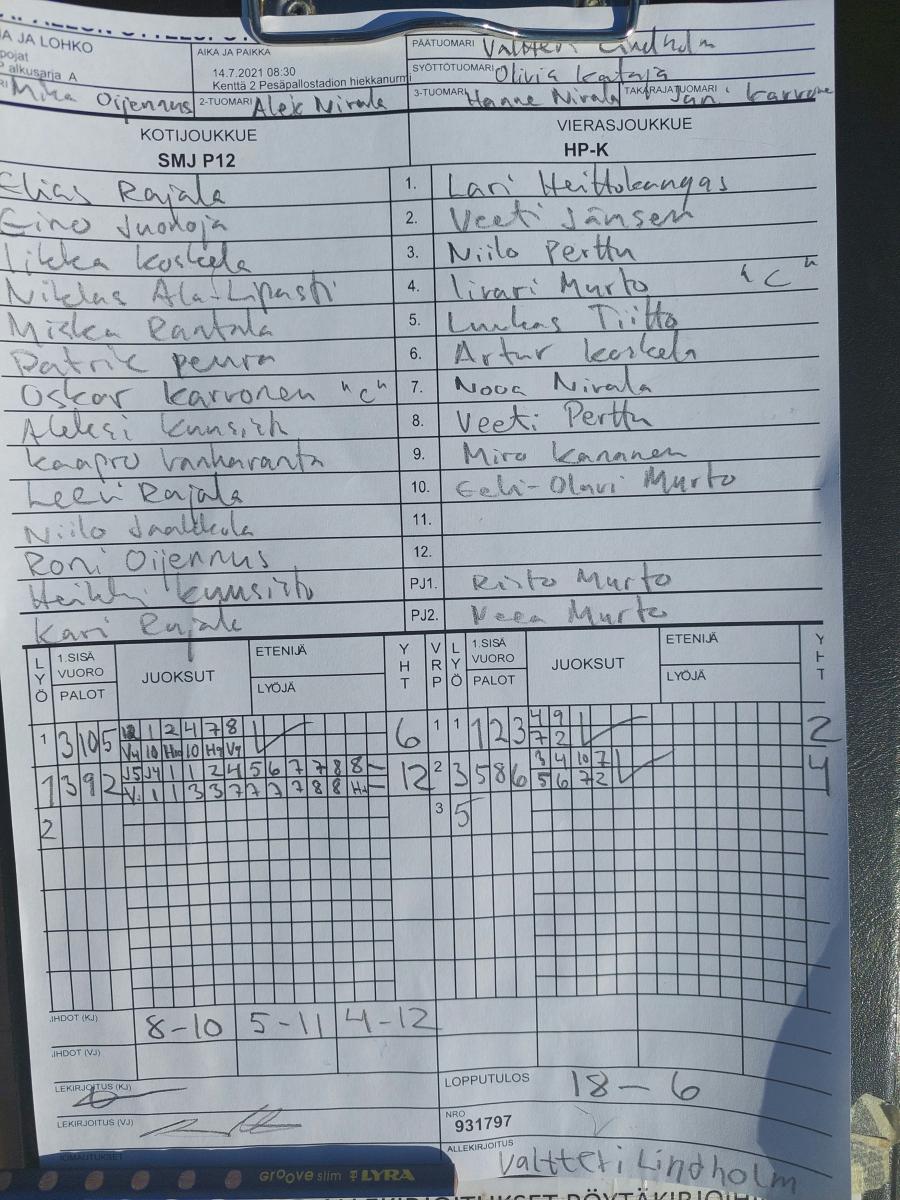 JA JA LOHKO
AIKA JA PAIKKA
PÄÄTUOMARI Valtteri Lindholm
pojat
SYÖTTÖTUOMARI Olivia Kataja
alkusarja A
14.7.2021 08:30
Kenttä 2 Pesäpallostadion hiekkanurmi
Mika Oijennus 2-TUOMARI Alek Nirala 3-TUOMARI Hanne Nirala TAKARAJATUOMARI Jani Karvonen
KOTIJOUKKUE VIERASJOUKKUE
SMJ P12 HP-K
Elias Rajala 1. Lari Heittokangas
Eino Juonoja 2. Veeti Jänsen
Iikka Koskela 3. Niilo Perttu
Niklas Ala-Lipasti 4. Iivari Murto "C"
Miska Rantala 5. Luukas Tiitto
Patrik Peura 6. Artur Koskela
Oskar Karvonen "C" 7. Nooa Nirala
Aleksi Kuusisto 8. Veeti Perttu
Kaapro Vanharanta 9. Miro Kananen
Leevi Rajala 10. Eeli-Olavi Murto
Niilo Jaakkola 11.
Roni Oijennus 12.
Heikki Kuusisto PJ1. Risto Murto
Kari Rajala PJ2. Neea Murto
LYÖ 1.SISÄ VUORO PALOT JUOKSUT ETENIJÄ LYÖJÄ YHT VRP LYÖ 1.SISÄ VUORO PALOT JUOKSUT ETENIJÄ LYÖJÄ YHT
1 3 10 5 12 1 2 4 7 8 6 1 1 1 2 3 4 9 2
10 10 7 2
1 3 9 2 J5 J4 1 1 2 4 5 6 7 7 8 8 – 12 2 3 5 8 6 3 4 10 7 4
1 1 3 3 7 7 7 7 8 8 5 6 7 2
2 3 5
8-10 5-11 4-12
LEKIRJOITUS (KJ)
LOPPUTULOS 18-6
LEKIRJOITUS (VJ)
NRO
931797
ALLEKIRJOITUS
Valtteri Lindholm
Groove slim LYRA